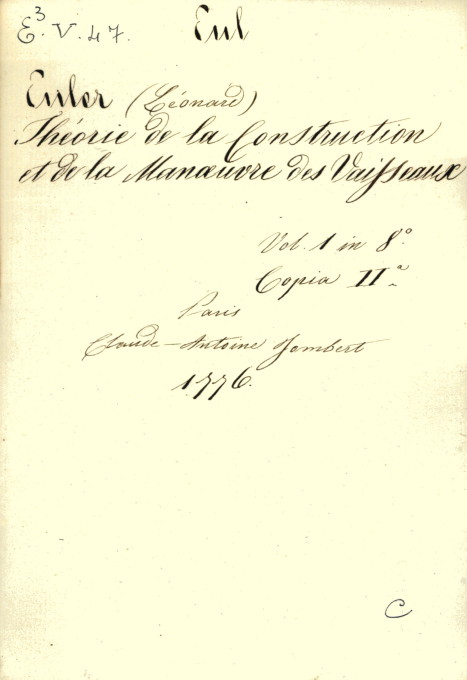 E³. V. 47.
Eul
Euler (Léonard)
Théorie de la Construction
et de la Manœuvre des Vaisseaux
Vol. 1 in 8°
Copia IIª
Paris
Claude-Antoine Jombert
1776.
C